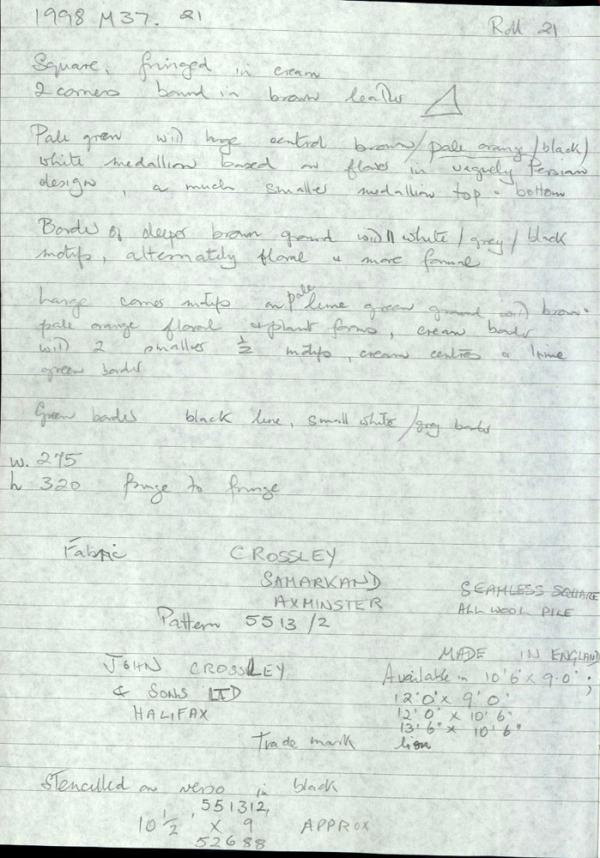 1998 M37. 21
Roll 21
Square, fringed in cream
2 corners bound in brown leather
Pale green with large central brown/pale orange/black/
white medallion based on flowers in vaguely Persian
design, a much smaller medallion top + bottom
Border of deeper brown ground with white/grey/black
motifs, alternately floral & more formal
Large corner motifs on pale lime green ground with brown
pale orange floral & plant forms, cream border
with 2 smaller 1/2 motifs, cream centres & lime
green border
Green border black line, small white/grey border
w. 275
h 320 fringe to fringe
Fabric CROSSLEY
SAMARKAND
AXMINSTER
SEAMLESS SQUARE
ALL WOOL PILE
Pattern 5513/2
JOHN CROSSLEY
& SONS LTD
HALIFAX
MADE IN ENGLAND
Available in 10'6" x 9'0";
12'0" x 9'0"
12'0" x 10'6"
13'6" x 10'6"
Trade mark lion
Stencilled on verso in black
551312,
10 1/2' x 9 APPROX
52688